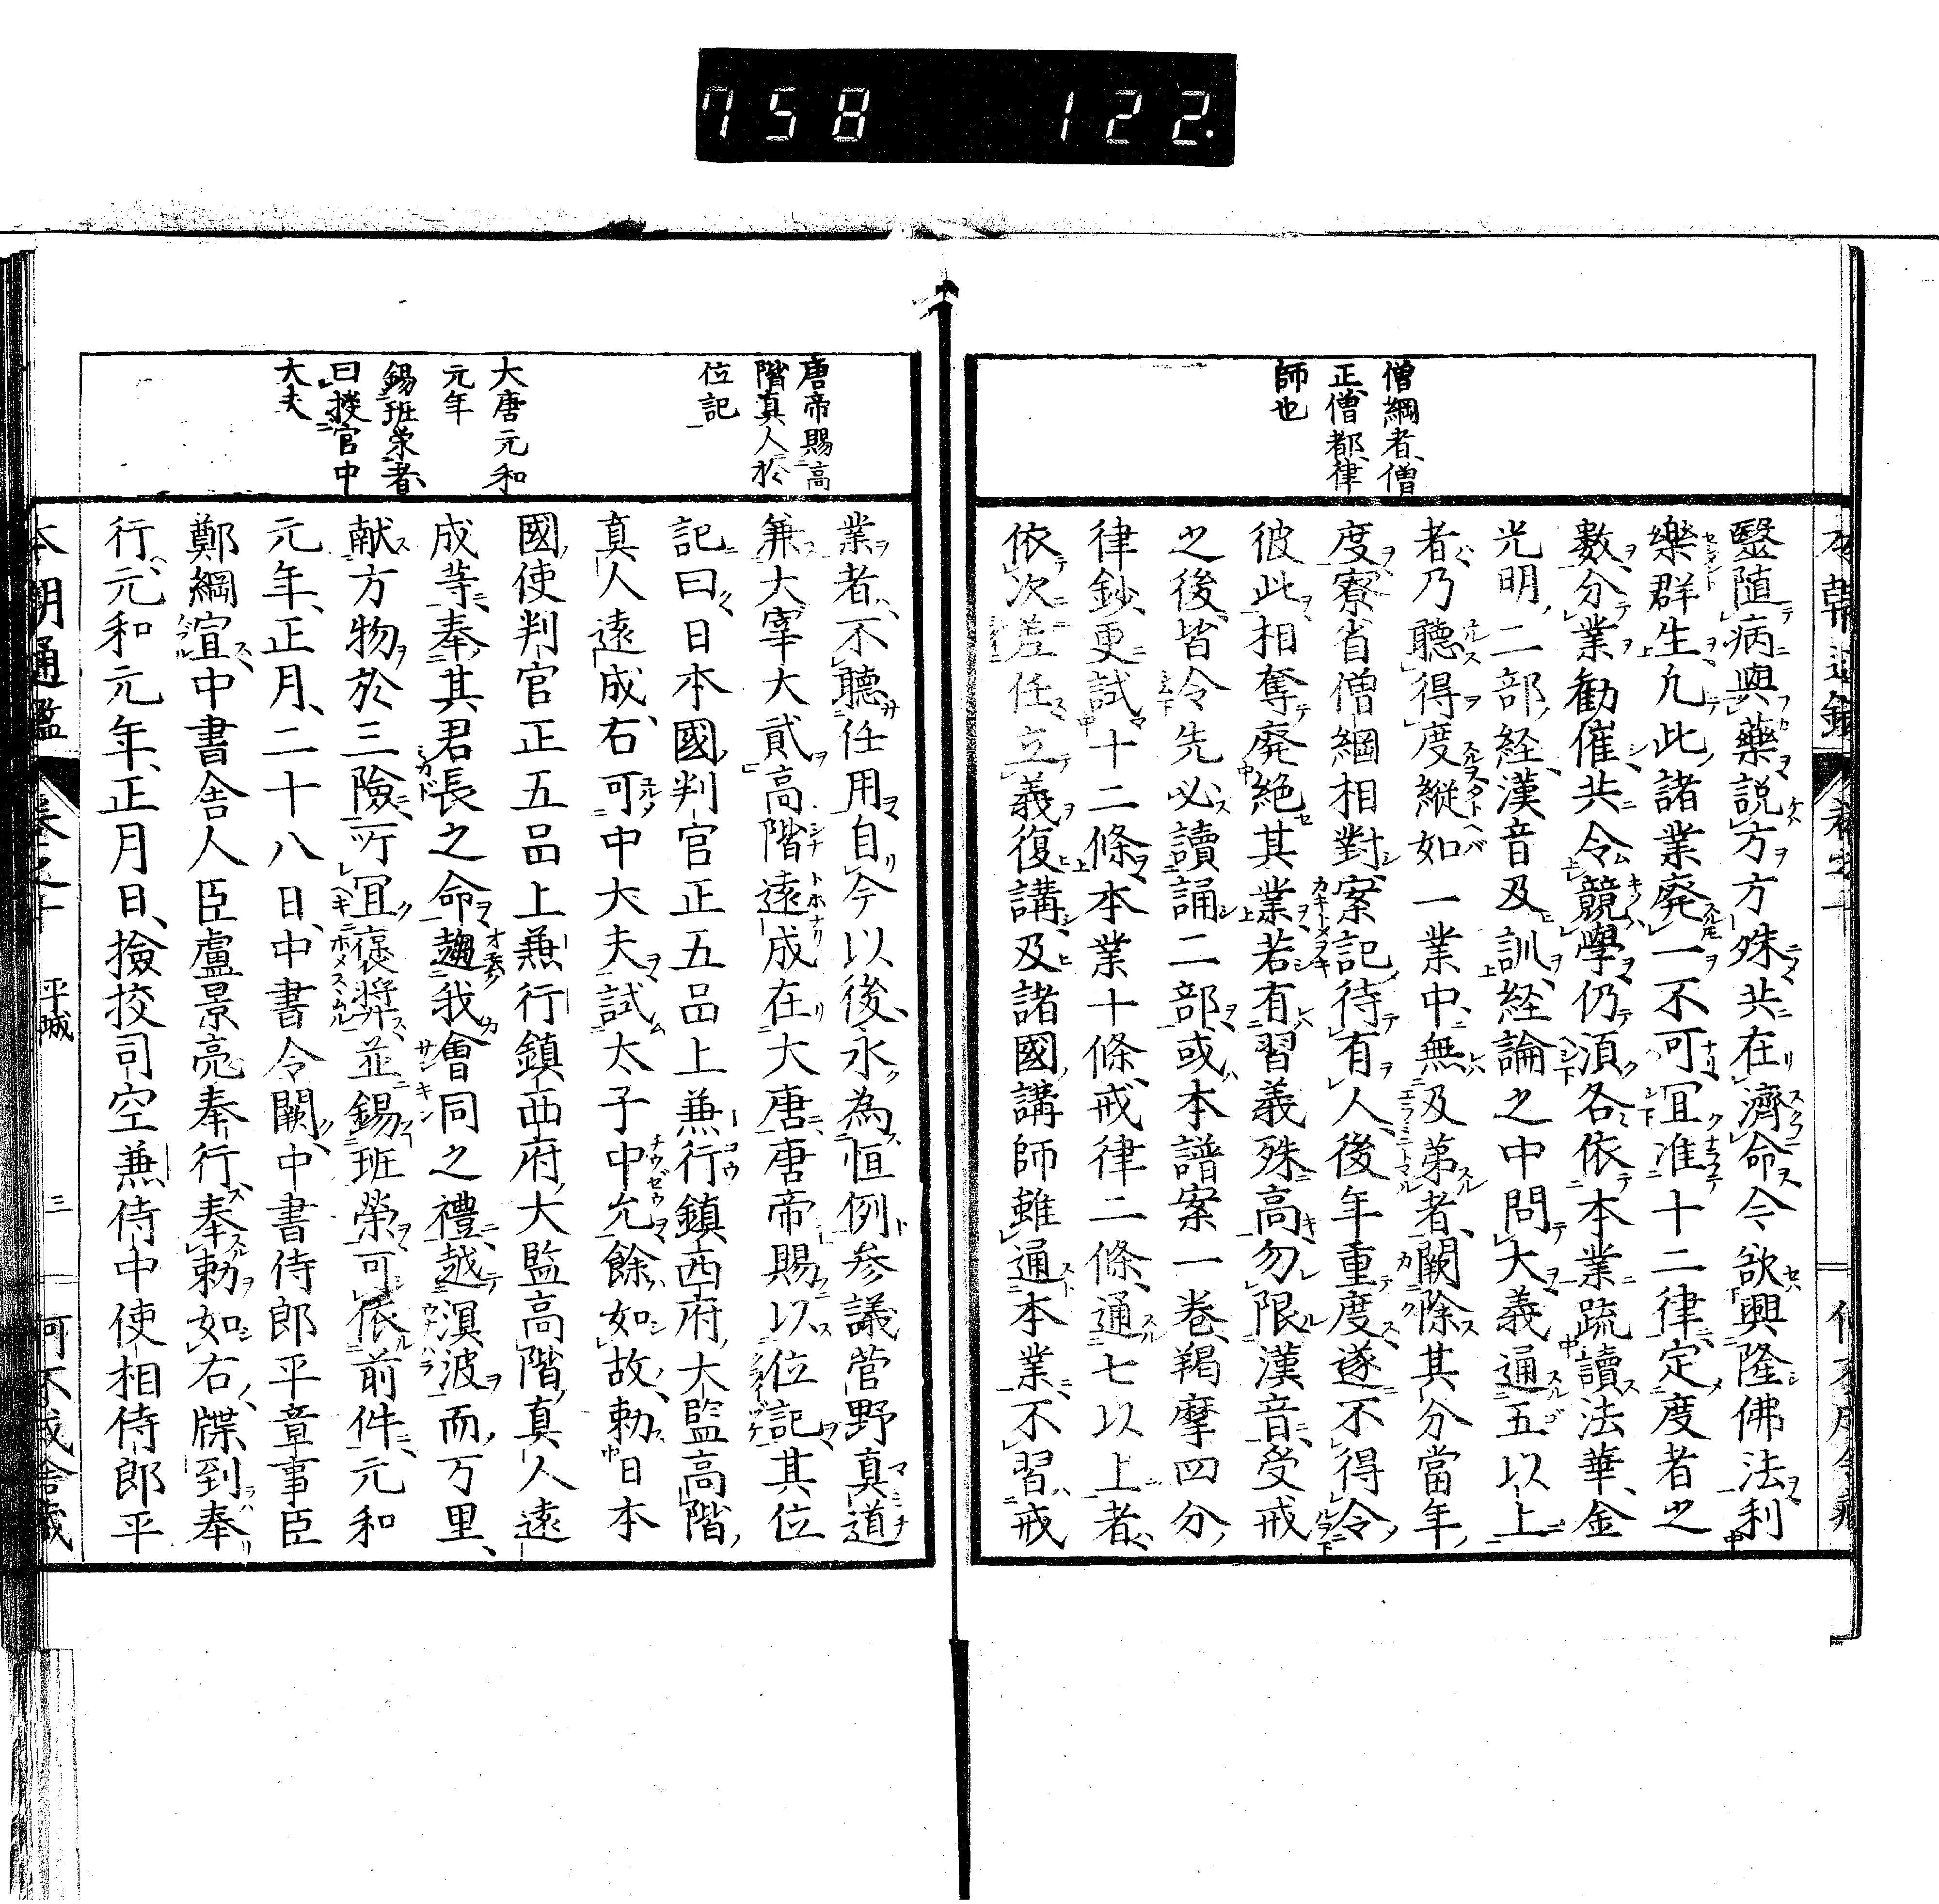 758 122.
僧綱者、僧
正、僧都、律
師也
醫隨病與藥說方方殊共在濟命今欲興隆佛法利
樂群生凢此諸業廢一不可冝准十二律定度者之
數分業勸催共令競學仍湏各依本業䟽讀法華、金
光明二部経漢音及訓経論之中問大義通五以上
者乃聽得度縱如一業中無及第者闕除其分當年
度寮省僧綱相對案記待有人後年重度遂不得令
彼此相奪廢絶其業若有習義殊高勿限漢音受戒
之後皆令先必讀誦二部或本譜案一卷羯摩四分
律鈔更試十二條本業十條、戒律二條、通七以上者
依次差任立義復講及諸國講師雖通本業不習戒
唐帝賜高
階真人於
位記
大唐元和
元年
錫班栄者、
曰授官中
大夫
業者不聽任用自今以後、永為恒例参議菅野真道
兼大宰大貳高階遠成在大唐唐帝賜以位記其位
記曰日本國判官正五品上兼行鎮西府大監高階
真人遠成右可中大夫試太子中允餘如故勅日本
國使判官正五品上兼行鎮西府大監高階真人遠
成等奉其君長之命趨我會同之禮越溟波而万里、
献方物於三險所冝褒奨並錫班榮可依前件元和
元年、正月、二十八日、中書令闕中書侍郎平章事臣
鄭綱宣中書舎人臣盧景亮奉行奉勅如右牒到奉
行元和元年、正月日、撿挍司空兼侍中使相侍郎平
本朝通鑑 卷之十 平城 三